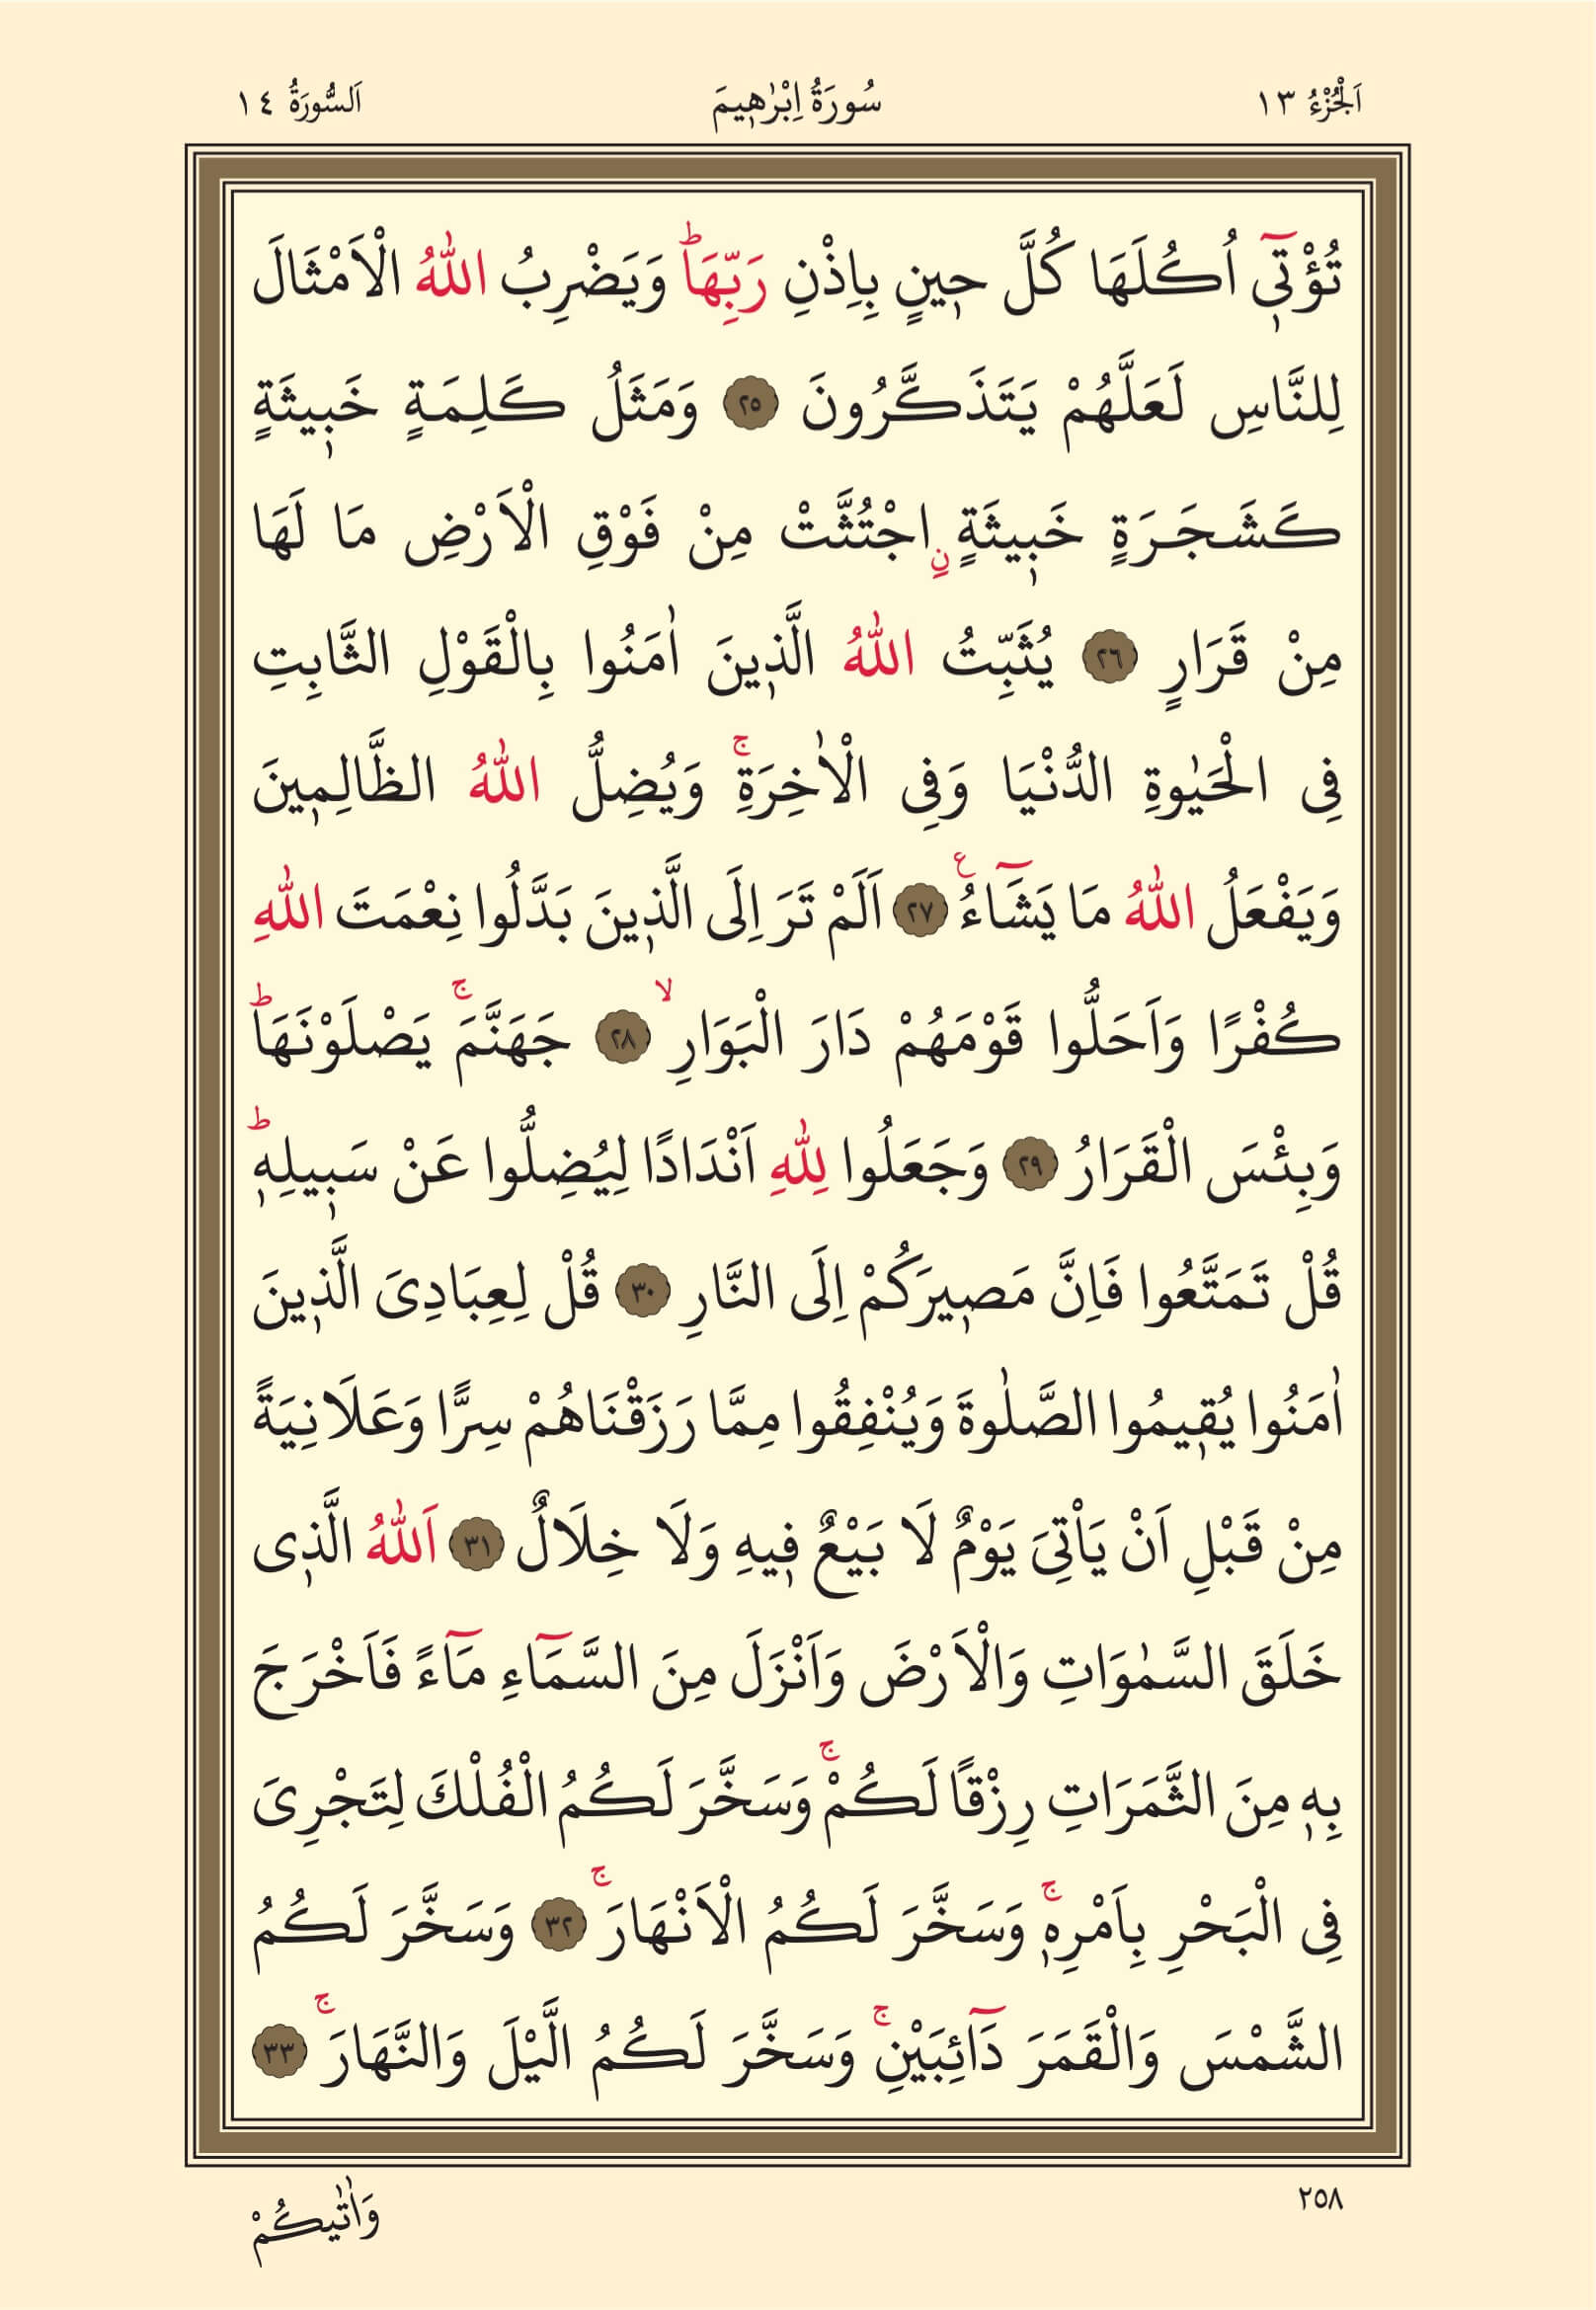 اَلْجُزْءُ ١٣
سُورَةُ اِبْرٰهٖيمَ
اَلسُّورَةُ ١٤
تُؤْتٖٓي اُكُلَهَا كُلَّ حٖينٍ بِاِذْنِ رَبِّهَاؕ وَيَضْرِبُ اللّٰهُ الْاَمْثَالَ
لِلنَّاسِ لَعَلَّهُمْ يَتَذَكَّرُونَ ٢٥ وَمَثَلُ كَلِمَةٍ خَبٖيثَةٍ
كَشَجَرَةٍ خَبٖيثَةٍ نِ اجْتُثَّتْ مِنْ فَوْقِ الْاَرْضِ مَا لَهَا
مِنْ قَرَارٍ ٢٦ يُثَبِّتُ اللّٰهُ الَّذٖينَ اٰمَنُوا بِالْقَوْلِ الثَّابِتِ
فِى الْحَيٰوةِ الدُّنْيَا وَفِى الْاٰخِرَةِۚ وَيُضِلُّ اللّٰهُ الظَّالِمٖينَ
وَيَفْعَلُ اللّٰهُ مَا يَشَٓاءُ ع ٢٧ اَلَمْ تَرَ اِلَى الَّذٖينَ بَدَّلُوا نِعْمَتَ اللّٰهِ
كُفْرًا وَاَحَلُّوا قَوْمَهُمْ دَارَ الْبَوَارِۙ ٢٨ جَهَنَّمَۚ يَصْلَوْنَهَاؕ
وَبِئْسَ الْقَرَارُ ٢٩ وَجَعَلُوا لِلّٰهِ اَنْدَادًا لِيُضِلُّوا عَنْ سَبٖيلِهٖؕ
قُلْ تَمَتَّعُوا فَاِنَّ مَصٖيرَكُمْ اِلَى النَّارِ ٣٠ قُلْ لِعِبَادِىَ الَّذٖينَ
اٰمَنُوا يُقٖيمُوا الصَّلٰوةَ وَيُنْفِقُوا مِمَّا رَزَقْنَاهُمْ سِرًّا وَعَلَانِيَةً
مِنْ قَبْلِ اَنْ يَاْتِىَ يَوْمٌ لَا بَيْعٌ فٖيهِ وَلَا خِلَالٌ ٣١ اَللّٰهُ الَّذٖى
خَلَقَ السَّمٰوَاتِ وَالْاَرْضَ وَاَنْزَلَ مِنَ السَّمَٓاءِ مَٓاءً فَاَخْرَجَ
بِهٖ مِنَ الثَّمَرَاتِ رِزْقًا لَكُمْۚ وَسَخَّرَ لَكُمُ الْفُلْكَ لِتَجْرِىَ
فِى الْبَحْرِ بِاَمْرِهٖۚ وَسَخَّرَ لَكُمُ الْاَنْهَارَۚ ٣٢ وَسَخَّرَ لَكُمُ
الشَّمْسَ وَالْقَمَرَ دَٓائِبَيْنِۚ وَسَخَّرَ لَكُمُ الَّيْلَ وَالنَّهَارَۚ ٣٣
٢٥٨
وَاٰتٰيكُمْ